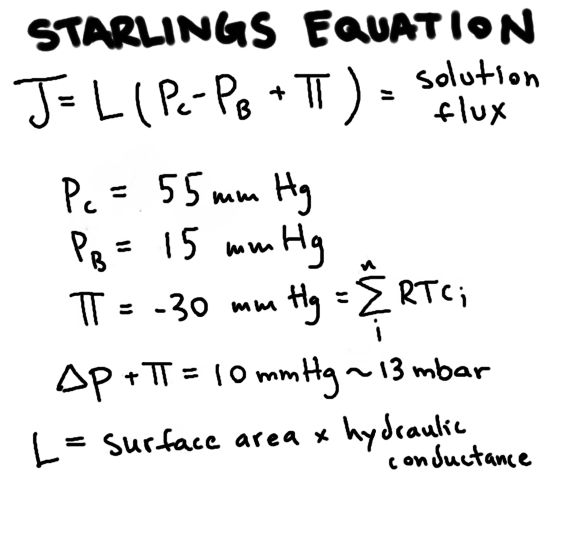 STARLINGS EQUATION
J = L (Pc - PB + π) = solution flux
Pc = 55 mm Hg
PB = 15 mm Hg
π = -30 mm Hg = Σ n i RTCi
Δp + π = 10 mmHg ~ 13 mbar
L = surface area x hydraulic conductance